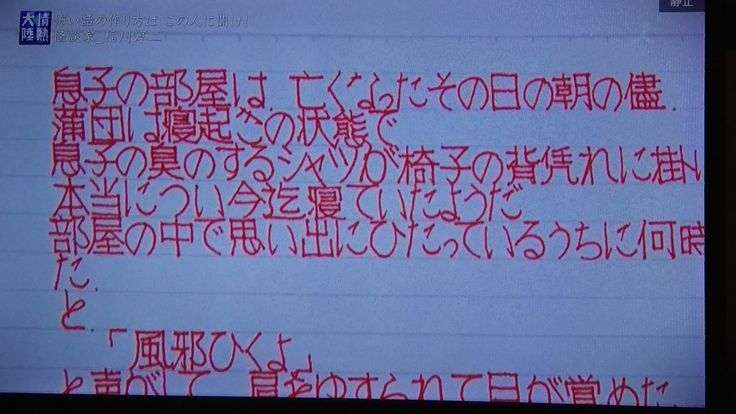 静止
情熱大陸
怖い話の作り方は この人に聞け!
怪談家_稲川淳二
息子の部屋は、亡くなったその日の朝の儘、
蒲団は寝起きの状態で
息子の臭のするシャツが椅子の背凭れに掛
本当につい今迄、寝ていたようだ
部屋の中で思い出にひたっているうちに何時
だ、
と、
「風邪ひくよ」
と声がして、肩をゆすられて目が覚めた、